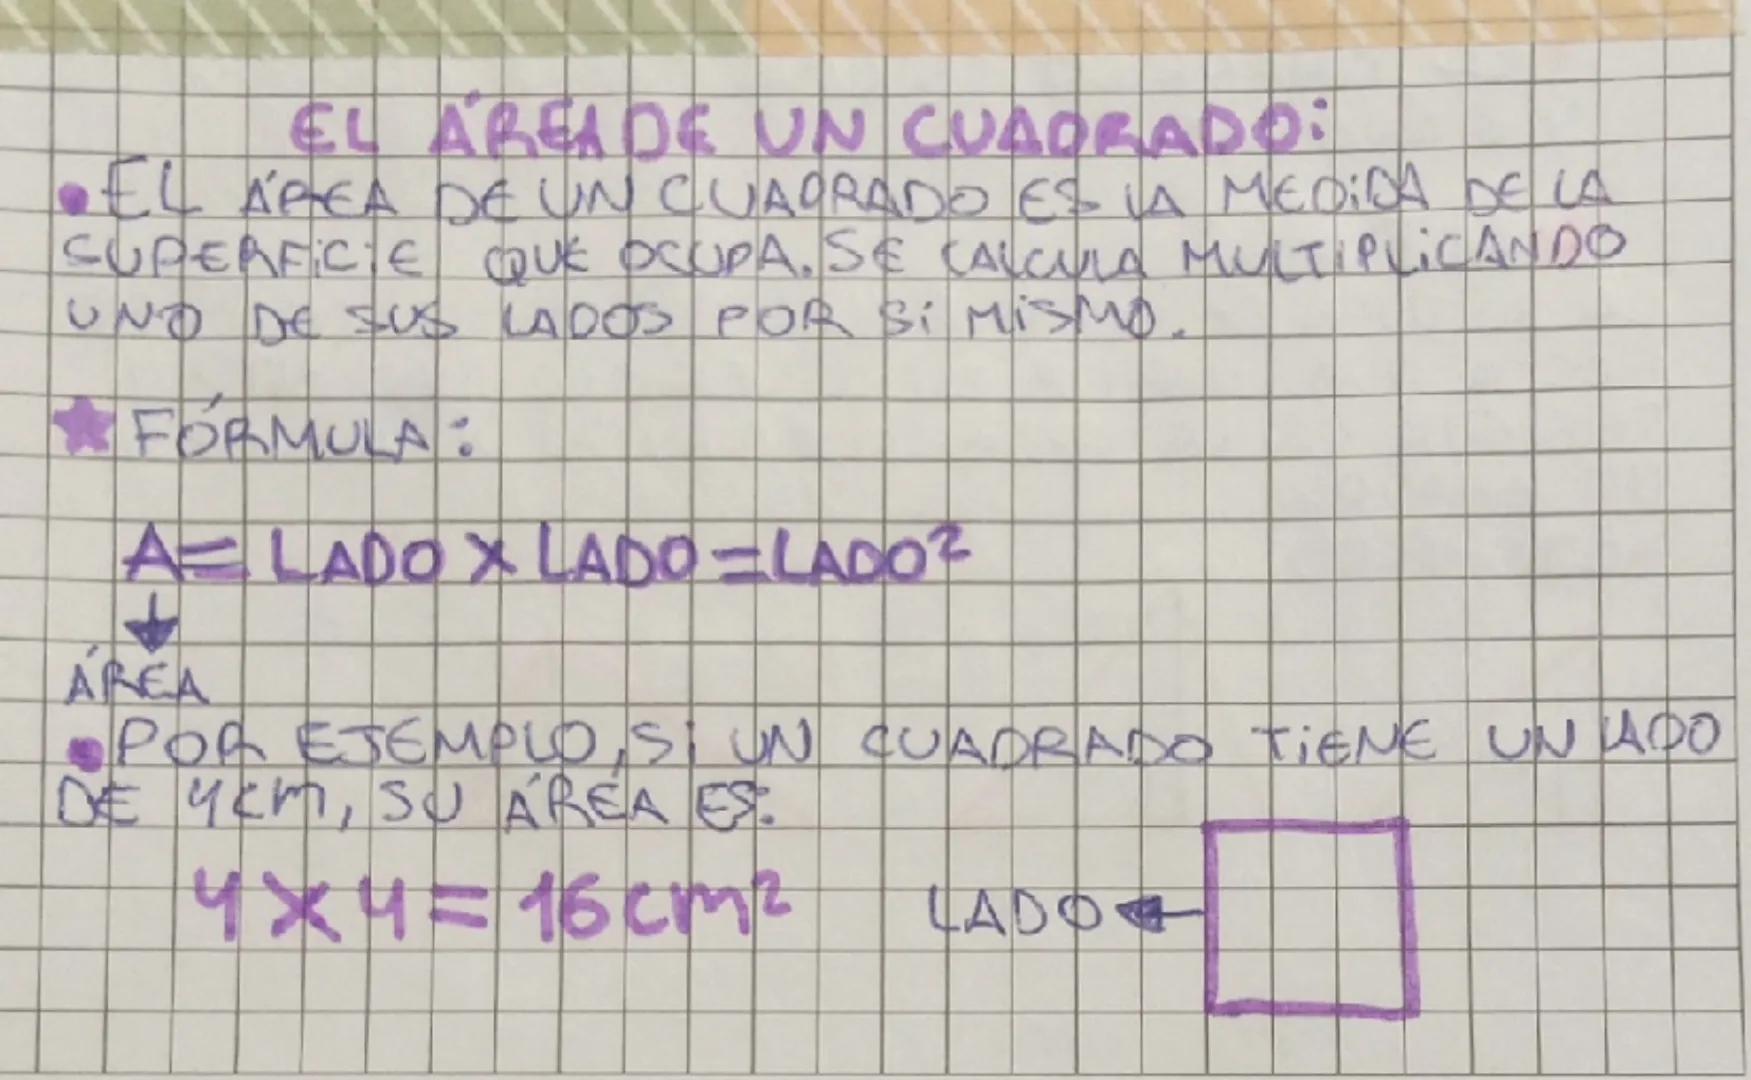 EL ÁREA DE UN CUADRADO:
• EL ÁREA DE UN CUADRADO ES LA MEDIDA DE LA
SUPERFICIE QUE OCUPA. SE CALCULA MULTIPLICANDO
UNO DE SUS LADOS POR SI MISMO.
★ FÓRMULA:
A = LADO x LADO = LADO²
↓
ÁREA
• POR EJEMPLO, SI UN CUADRADO TIENE UN LADO
DE 4cm, SU ÁREA ES:
4 x 4 = 16 cm²
LADO ←